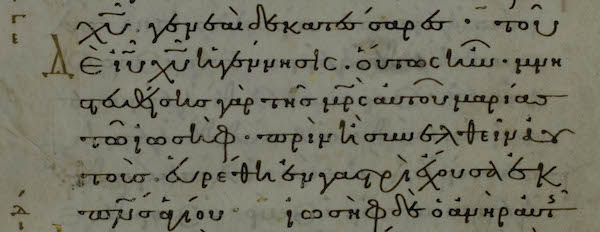 χ̅υ̅· γενεαὶ δεκατέσσαρες · τοῦ
Δὲ ι̅υ̅ χ̅υ̅ ἡ γέννησις· οὕτως ἦν · μνη
στευθείσης γὰρ τῆς μ̅ρ̅ς̅ αὐτοῦ μαρίας
τῶ ἰωσὴφ · πρὶν ἢ συνελθεῖν αὐ
τοὺς· εὑρέθη ἐν γαστρὶ ἔχουσα ἐκ
π̅ν̅ς̅ ἁγίου · ἰωσὴφ δὲ ὁ ἀνὴρ αὐτῆς